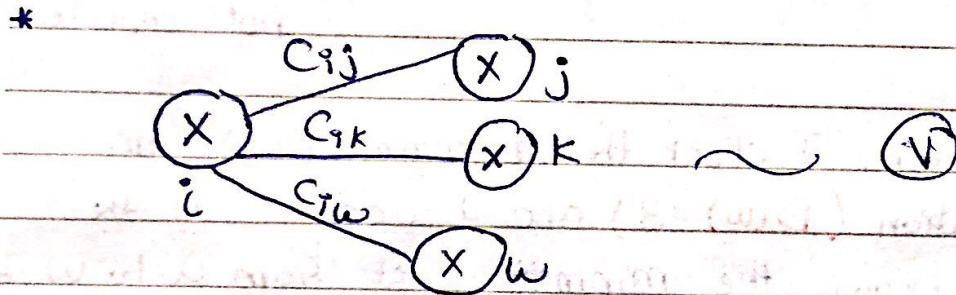 *
Cij X j
X Cik X K ~ V
i Ciw
X w